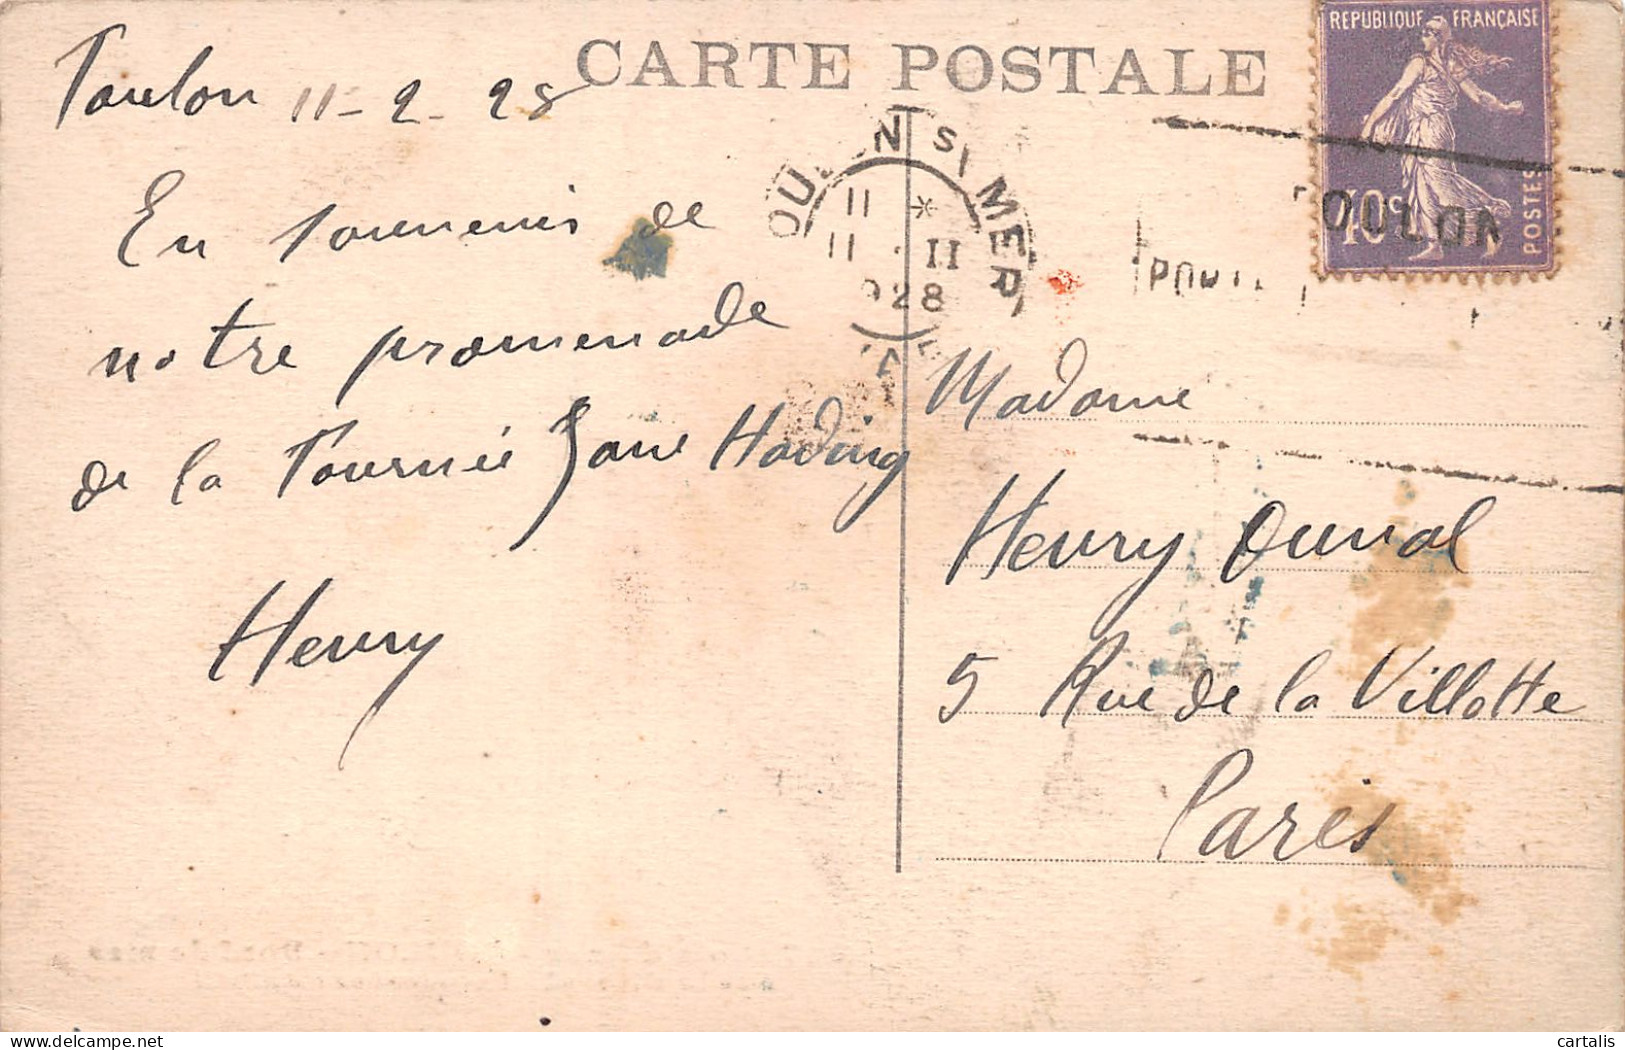 CARTE POSTALE
Toulon 11-2-28
En souvenir de
notre promenade
de la Tournée Jane Hading
Henry
RÉPUBLIQUE FRANÇAISE
40c
POSTES
OULON S/ MER
11 *
11 II
928
OULON
Madame
Henry Duval
5 Rue de la Villette
Paris
cartalis